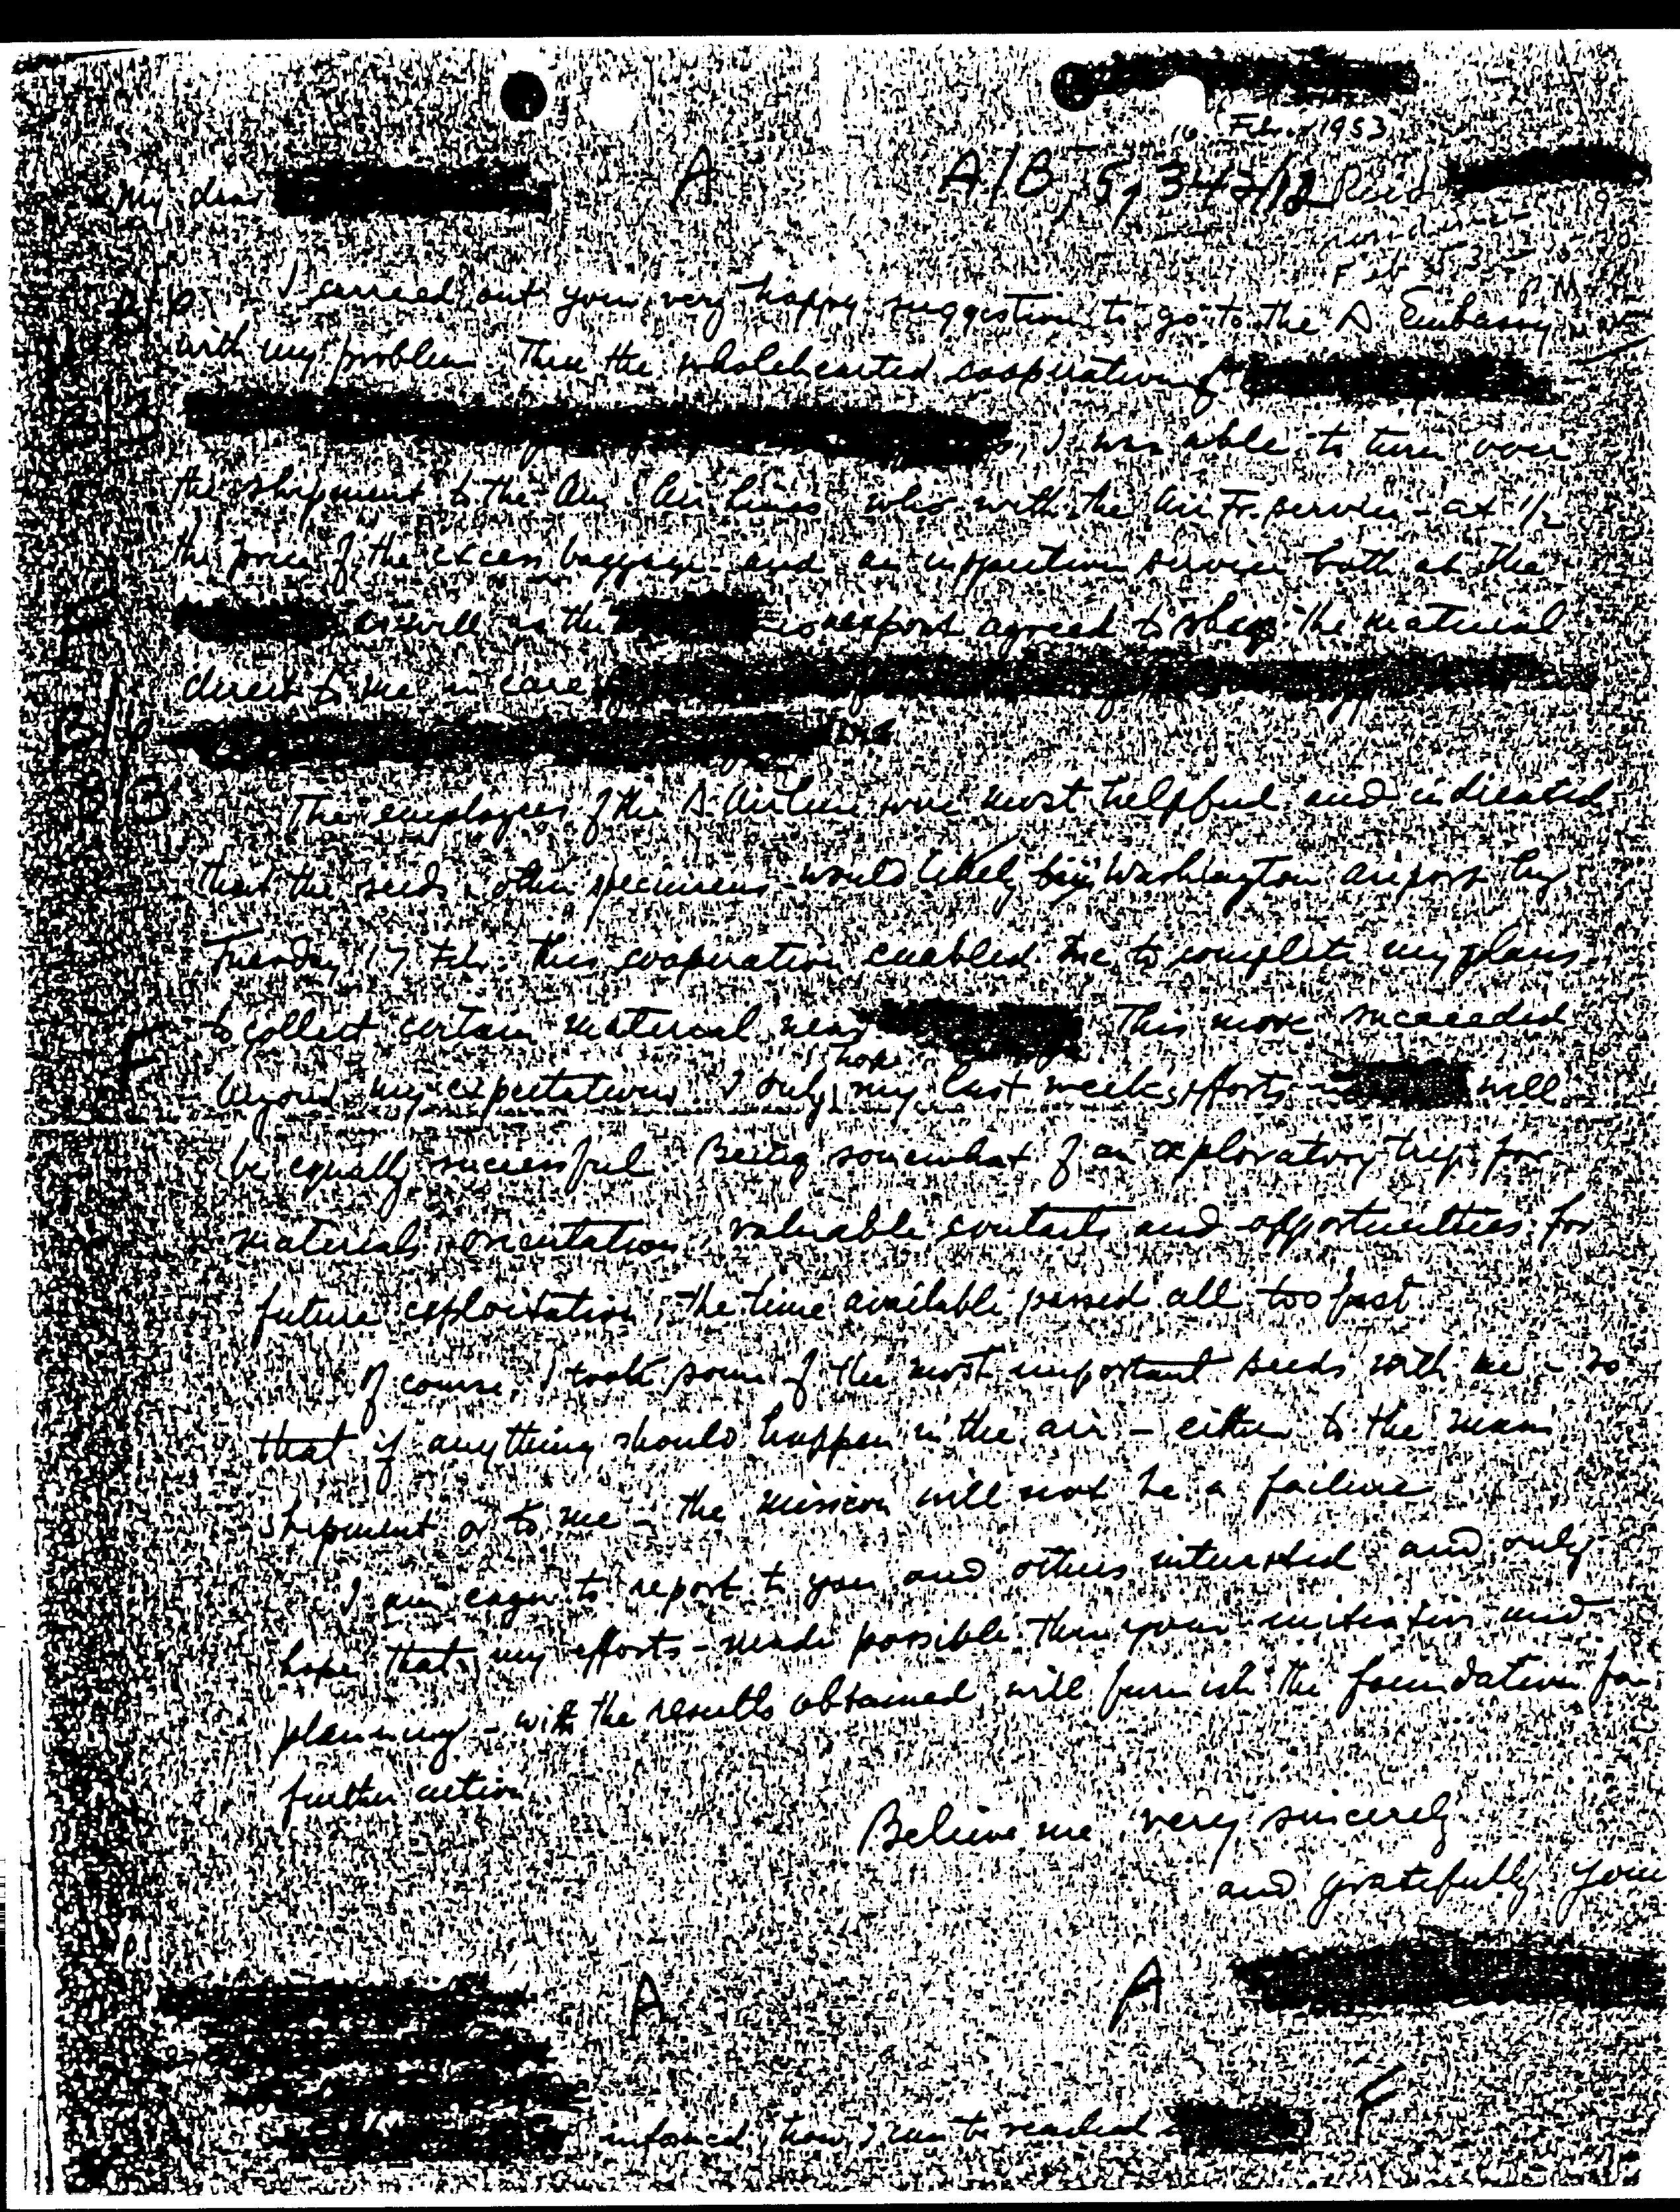 16 Feb 1953
My dear
A
A/B, 5, 343/12 Rec'd
Feb 53
P.M.
I carried out your very happy suggestion to go to the A. Embassy
with my problem. Thru the wholehearted cooperation of
I was able to turn over
the shipment to the Am. Air Lines who with the Air Fr. service - at 1/2
the price of the excess baggage - and an inspection service both at the
as well as the airport agreed to ship the material
direct to me in care
The employees of the A. Airline were most helpful and indicated
that the seeds & other specimens would likely Washington airport by
Tuesday 17 Feb. This cooperation enabled me to complete my plans
to collect certain material near This move succeeded
F
beyond my expectations. I only hope my last weeks efforts will
be equally successful. Being somewhat of an exploratory trip for
materials, orientation, valuable contacts and opportunities for
future exploitation, the time available passed all too fast.
Of course, I took some of the most important seeds with me - so
that if anything should happen in the air - either to the main
shipment or to me - the mission will not be a failure
I am eager to report to you and others interested and only
hope that my efforts - made possible thru your initiative and
planning - with the results obtained will furnish the foundation for
further action
Believe me very sincerely
and gratefully your
PS
A
A
informed, how I can be reached